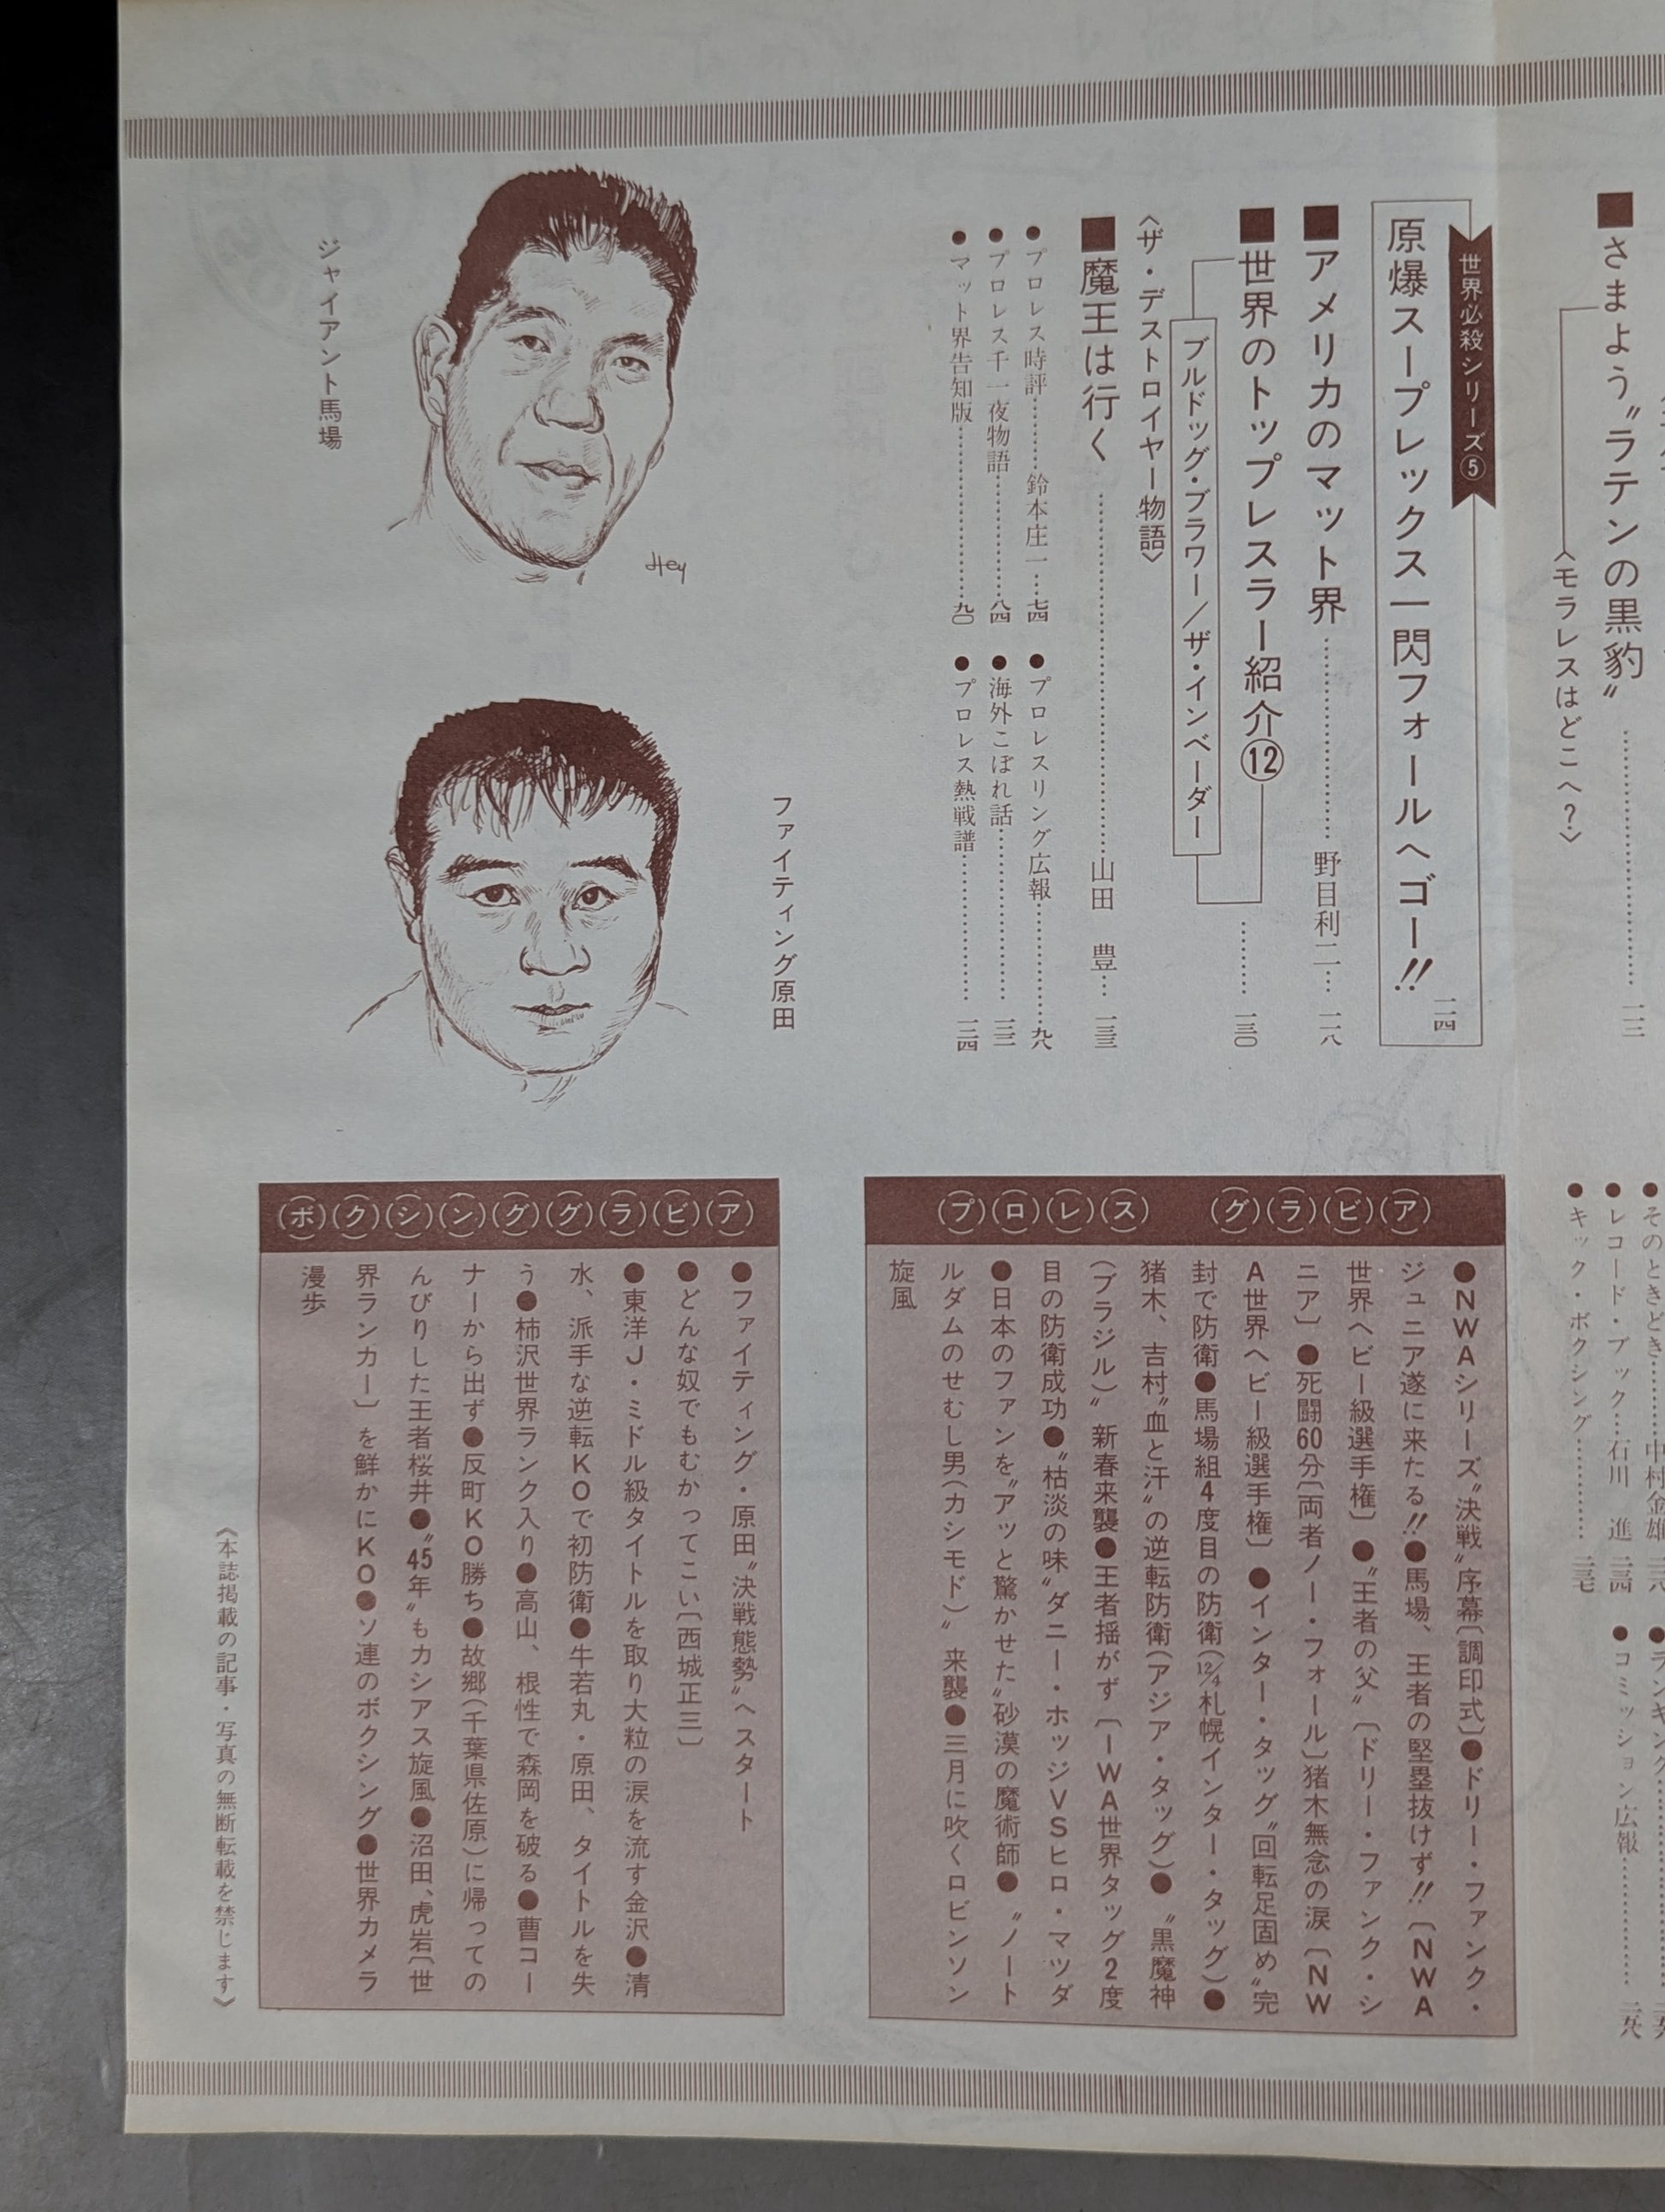 ■さまよう〝ラテンの黒豹〟
〈モラレスはどこへ?〉
世界必殺シリーズ⑤
原爆スープレックス一閃フォールへゴー!!
一一四
■アメリカのマット界……野目利二…一一八
■世界のトップレスラー紹介⑫……一三〇
ブルドッグ・ブラワー/ザ・インベーダー
〈ザ・デストロイヤー物語〉
■魔王は行く……山田 豊…
●プロレス時評……鈴木庄一…七四
●プロレス千一夜物語……八四
●マット界告知版……九〇
●プロレスリング広報……九八
●海外こぼれ話……
●プロレス熱戦譜……
ジャイアント馬場
Hey
ファイティング原田
●そのときどき……中村金雄
●レコード・ブック…石川 進
●キック・ボクシング……
●ランキング……
●コミッション広報……
プロレス グラビア
●NWAシリーズ〝決戦〟序幕〔調印式〕●ドリー・ファンク・
ジュニア遂に来たる!!●馬場、王者の堅塁抜けず!!〔NWA
世界ヘビー級選手権〕●〝王者の父〟〔ドリー・ファンク・シ
ニア〕●死闘60分〔両者ノー・フォール〕猪木無念の涙〔NW
A世界ヘビー級選手権〕●インター・タッグ〝回転足固め〟完
封で防衛●馬場組4度目の防衛(12/4札幌インター・タッグ)●
猪木、吉村〝血と汗〟の逆転防衛(アジア・タッグ)●〝黒魔神
(ブラジル)〟新春来襲●王者揺がず〔IWA世界タッグ2度
目の防衛成功●〝枯淡の味〟ダニー・ホッジVSヒロ・マツダ
●日本のファンを〝アッと驚かせた〟砂漠の魔術師●〝ノート
ルダムのせむし男(カシモド)〟来襲●三月に吹くロビンソン
旋風
ボクシンググラビア
●ファイティング・原田〝決戦態勢〟へスタート
●どんな奴でもむかってこい〔西城正三〕
●東洋J・ミドル級タイトルを取り大粒の涙を流す金沢●清
水、派手な逆転KOで初防衛●牛若丸・原田、タイトルを失
う●柿沢世界ランク入り●高山、根性で森岡を破る●曹コー
ナーから出ず●反町KO勝ち●故郷(千葉県佐原)に帰っての
んびりした王者桜井●〝45年〟もカシアス旋風●沼田、虎岩〔世
界ランカー〕を鮮かにKO●ソ連のボクシング●世界カメラ
漫歩
《本誌掲載の記事・写真の無断転載を禁じます》